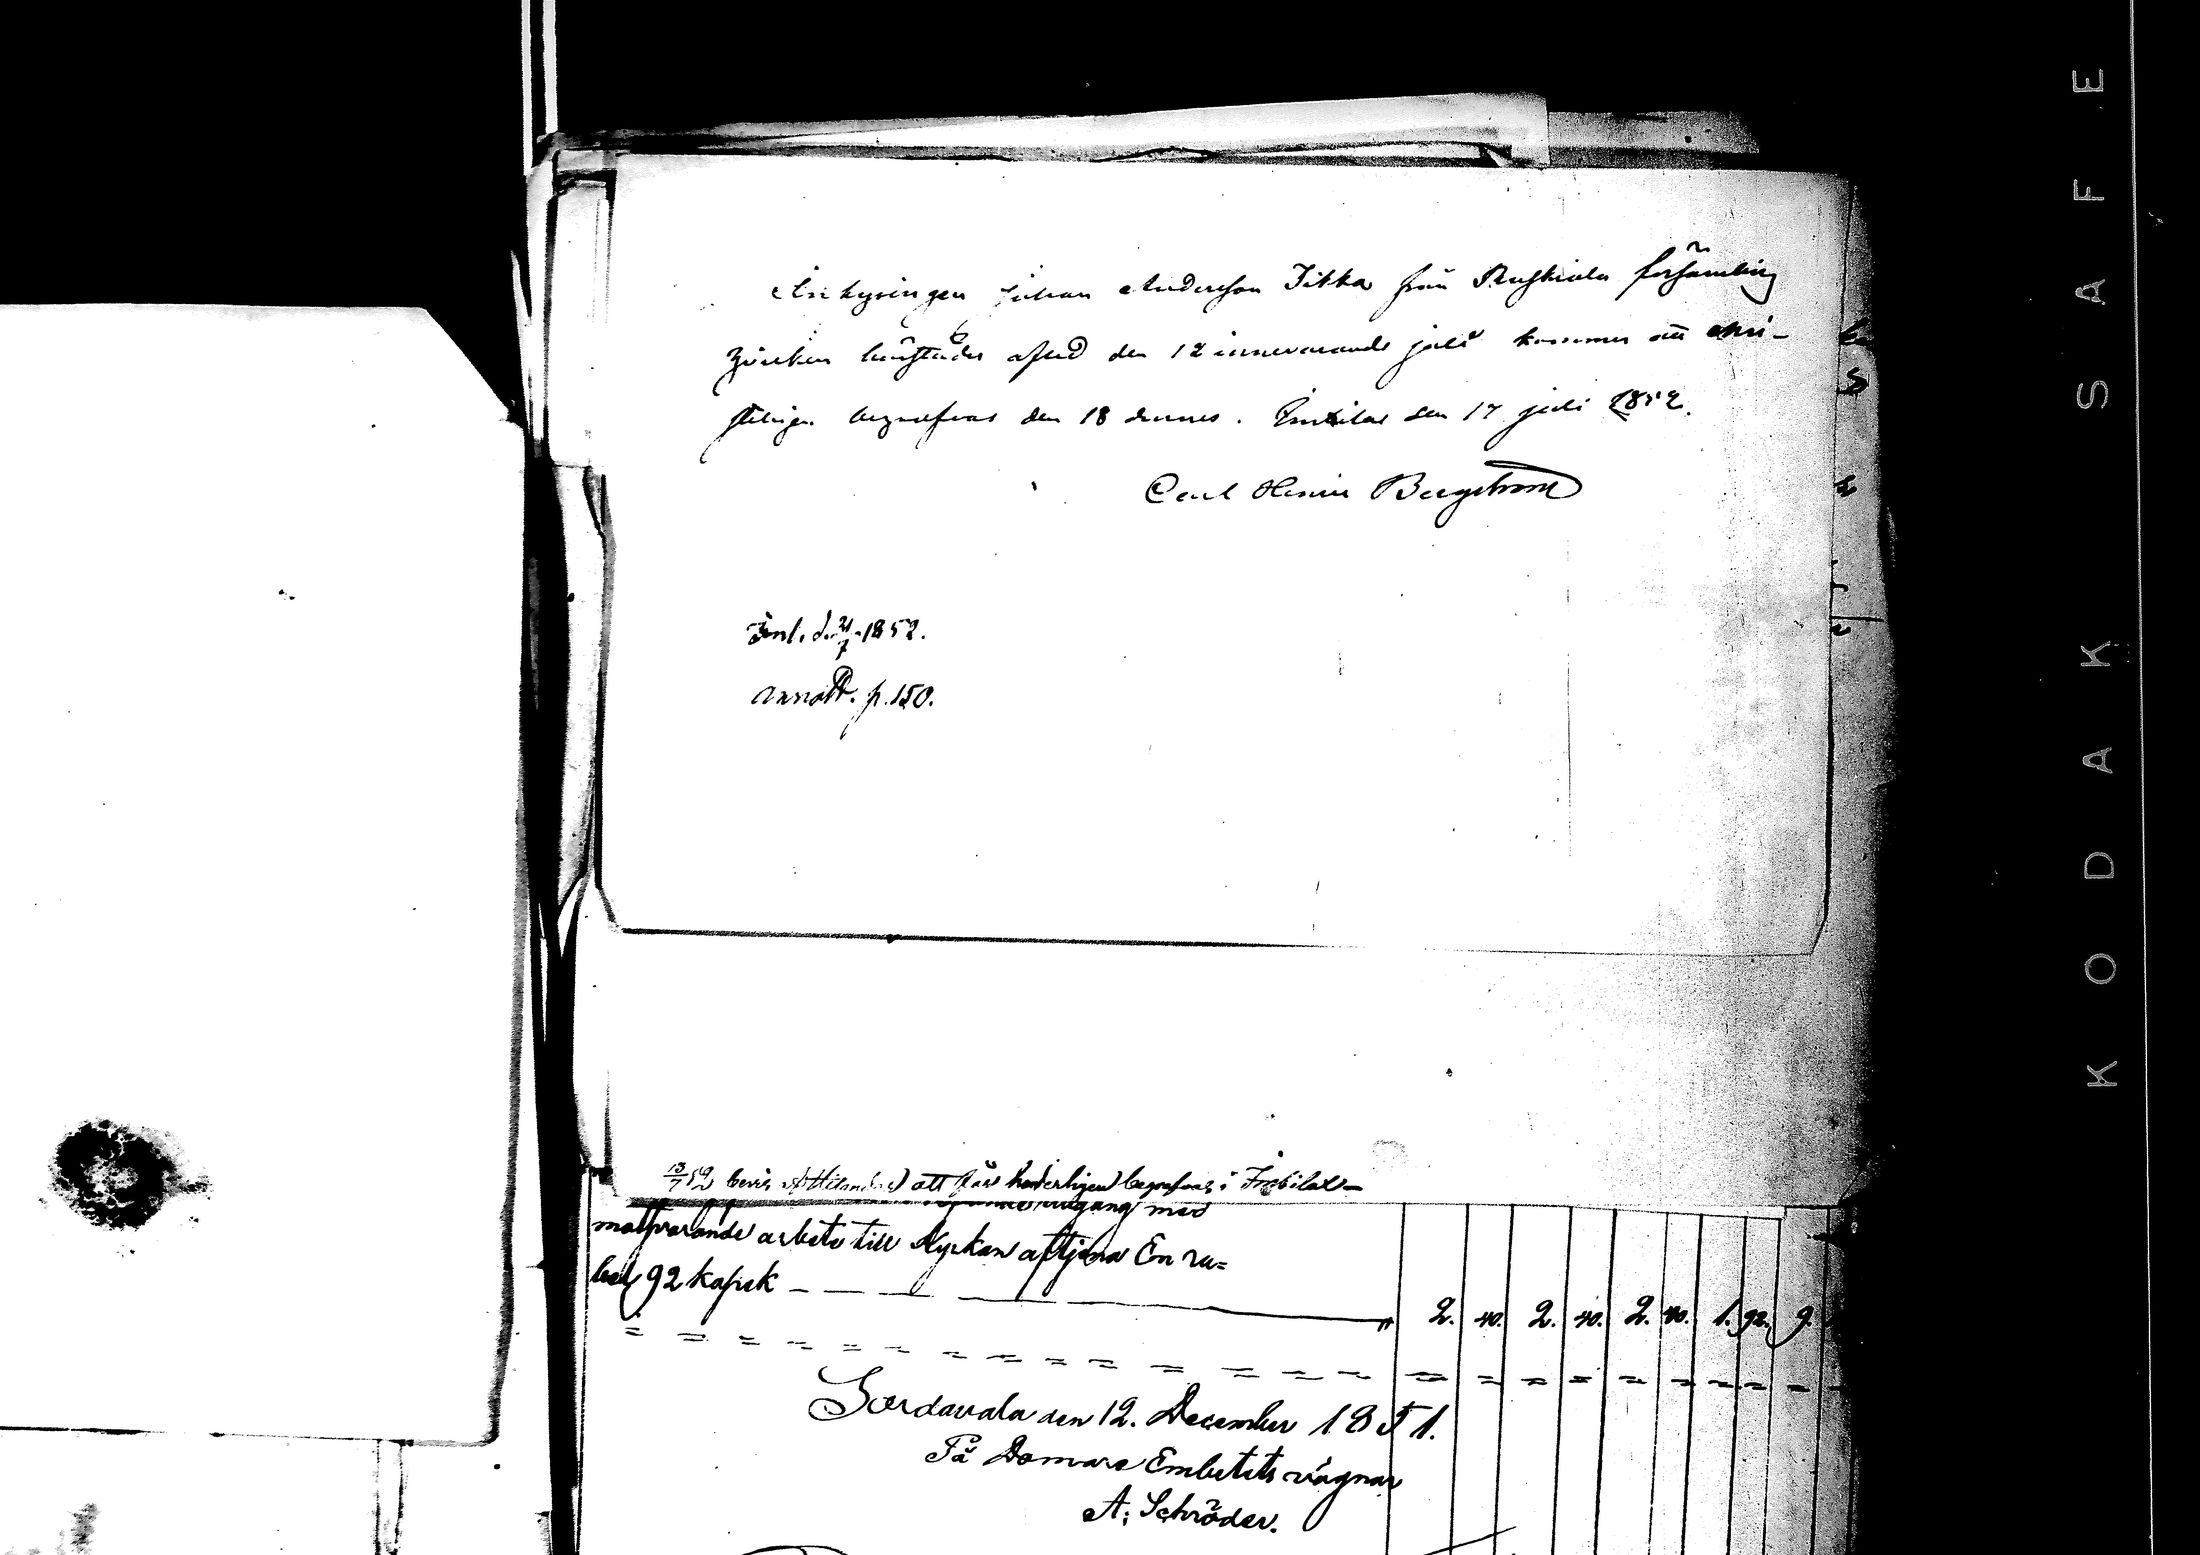 Inhysingen Johan Andersson Jikka från Ruskiala församling
härstädes afled den 12 innevarande juli kommer att chri-
steligen begrafvas den 18 dennes. Imbilax den 17 juli 1852.
Carl Henric Bergström
Inl. d. 21/7 1852.
annott. p. 150.
13/7 52 bevis att får hederligen begrafvas i Imbilax
medgång med
motsvarande arbete till Kyrkan aftjena En ru=
bel 92 kopek — — — " 2. 40. 2. 40. 2. 40. 1. 92. 9.
Sordavala den 12. December 1851.
På Domare Embetets vägnar
A. Schröder.
KODAK SAFE